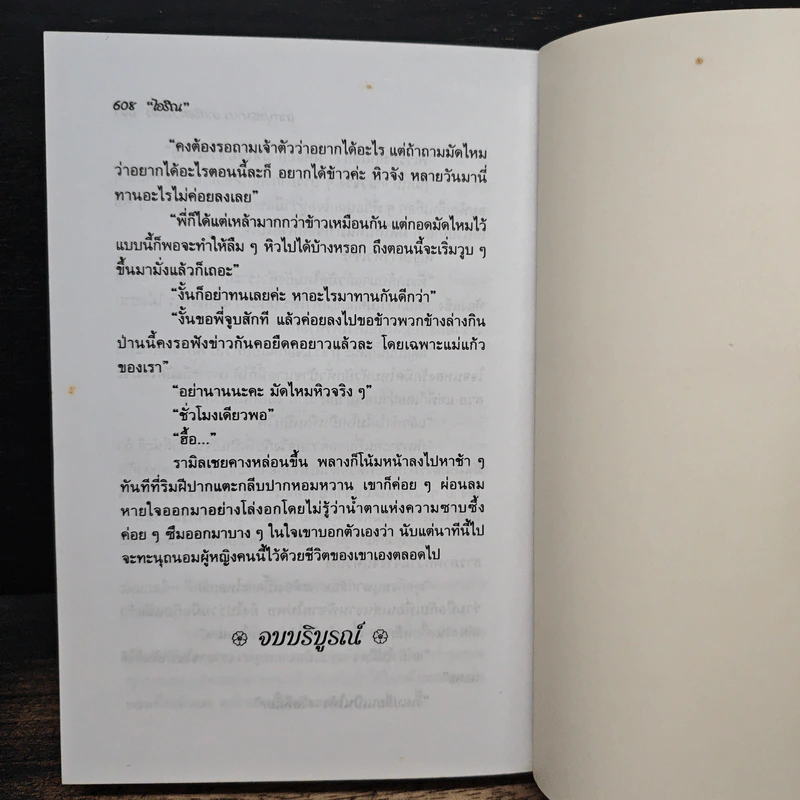 608 “ไอริณ”
“คงต้องรอถามเจ้าตัวว่าอยากได้อะไร แต่ถ้าถามมัดไหม
ว่าอยากได้อะไรตอนนี้ละก็ อยากได้ข้าวค่ะ หิวจัง หลายวันมานี่
ทานอะไรไม่ค่อยลงเลย”
“พี่ก็ได้แต่เหล้ามากกว่าข้าวเหมือนกัน แต่กอดมัดไหมไว้
แบบนี้ก็พอจะทำให้ลืม ๆ หิวไปได้บ้างหรอก ถึงตอนนี้จะเริ่มวูบ ๆ
ขึ้นมามั่งแล้วก็เถอะ”
“งั้นก็อย่าทนเลยค่ะ หาอะไรมาทานกันดีกว่า”
“งั้นขอพี่จูบสักที แล้วค่อยลงไปขอข้าวพวกข้างล่างกิน
ป่านนี้คงรอฟังข่าวกันคอยืดคอยาวแล้วละ โดยเฉพาะแม่แก้ว
ของเรา”
“อย่านานนะคะ มัดไหมหิวจริง ๆ”
“ชั่วโมงเดียวพอ”
“ฮื้อ...”
รามิลเชยคางหล่อนขึ้น พลางก็โน้มหน้าลงไปหาช้า ๆ
ทันทีที่ริมฝีปากแตะกลีบปากหอมหวาน เขาก็ค่อย ๆ ผ่อนลม
หายใจออกมาอย่างโล่งอกโดยไม่รู้ว่าน้ำตาแห่งความซาบซึ้ง
ค่อย ๆ ซึมออกมาบาง ๆ ในใจเขาบอกตัวเองว่า นับแต่นาทีนี้ไป
จะทะนุถนอมผู้หญิงคนนี้ไว้ด้วยชีวิตของเขาเองตลอดไป
จบบริบูรณ์